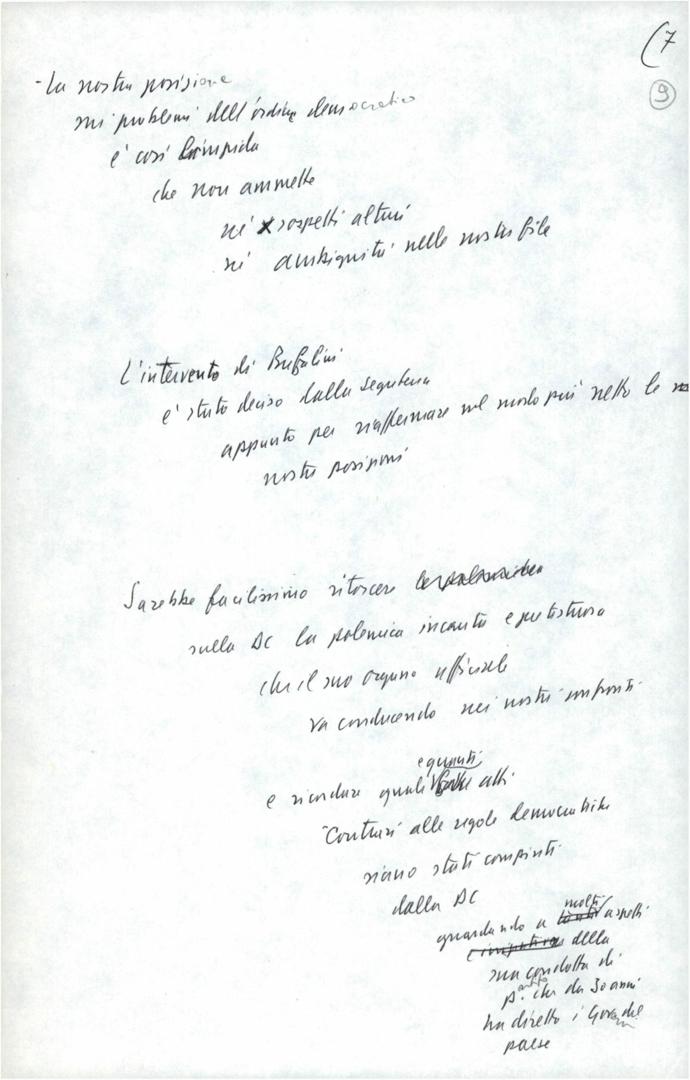 (7
9
- La nostra posizione
sui problemi dell'ordine democratico
è così limpida
che non ammette
né sospetti altrui
né ambiguità nelle nostre file
L'intervento di Bufalini
è stato deciso dalla segreteria
appunto per riaffermare nel modo più netto le
nostre posizioni
Sarebbe facilissimo ritorcere
sulla DC la polemica incauta e pretestuosa
che il suo organo ufficiale
va conducendo nei nostri confronti
e quanti
e ricordare quali atti
"Contrari alle regole democratiche
siano stati compiuti
dalla DC
molti
guardando a aspetti
della
sua condotta di
p.to che da 30 anni
ha diretto i Gov. del
paese